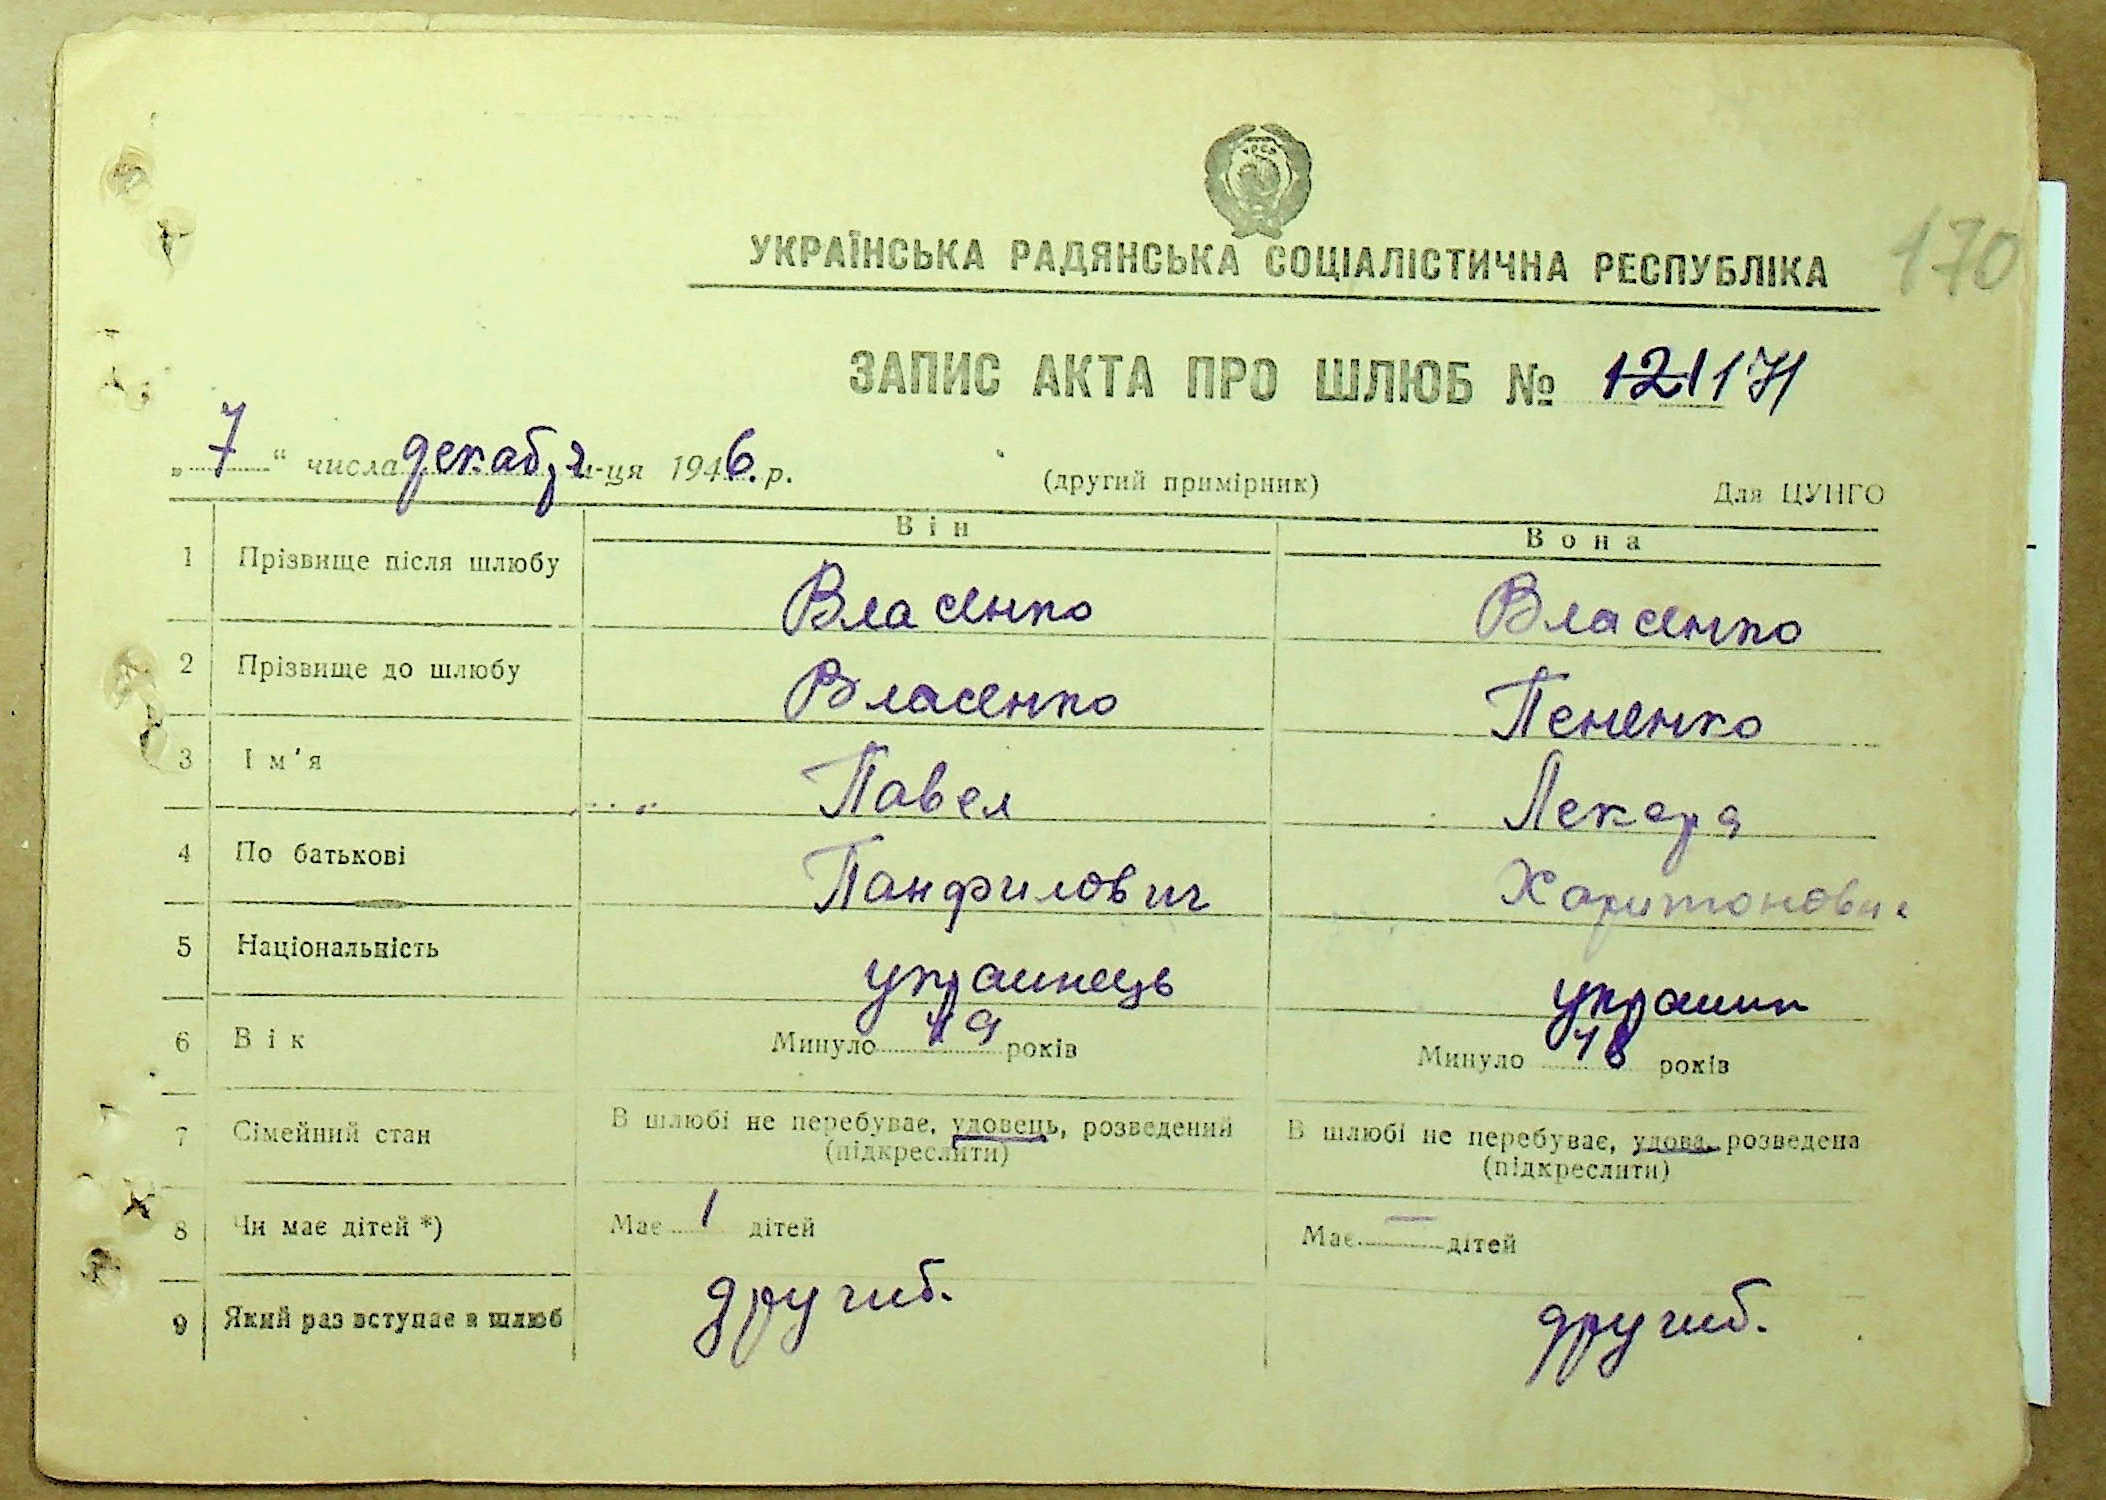 УРСР
УКРАЇНСЬКА РАДЯНСЬКА СОЦІАЛІСТИЧНА РЕСПУБЛІКА
170
ЗАПИС АКТА ПРО ШЛЮБ № 121 171
„7“ числа декабря м-ця 1946 р.
(другий примірник)
Для ЦУНГО
Він Вона
1 Прізвище після шлюбу Власенко Власенко
2 Прізвище до шлюбу Власенко Пененко
3 Ім'я Павел
4 По батькові Панфилович Харитоновн
5 Національність украинець украин
6 Вік Минуло 49 років Минуло 48 років
7 Сімейний стан В шлюбі не перебуває, удовець, розведений В шлюбі не перебуває, удова, розведена
(підкреслити) (підкреслити)
8 Чи має дітей *) Має 1 дітей Має — дітей
9 Який раз вступає в шлюб другиб. другиб.